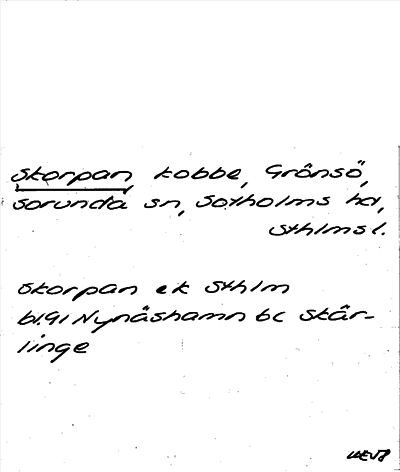 Skorpan, kobbe, Grönsö,
Sorunda sn, Sotholms hd,
Sthlms l.
Skorpan ek Sthlm
bl.91 Nynäshamn bc Skär-
linge